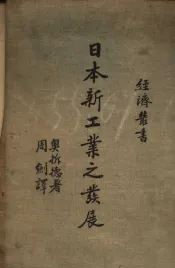 經濟叢書
日本新工業之發展
奧拆德著
周劍譯